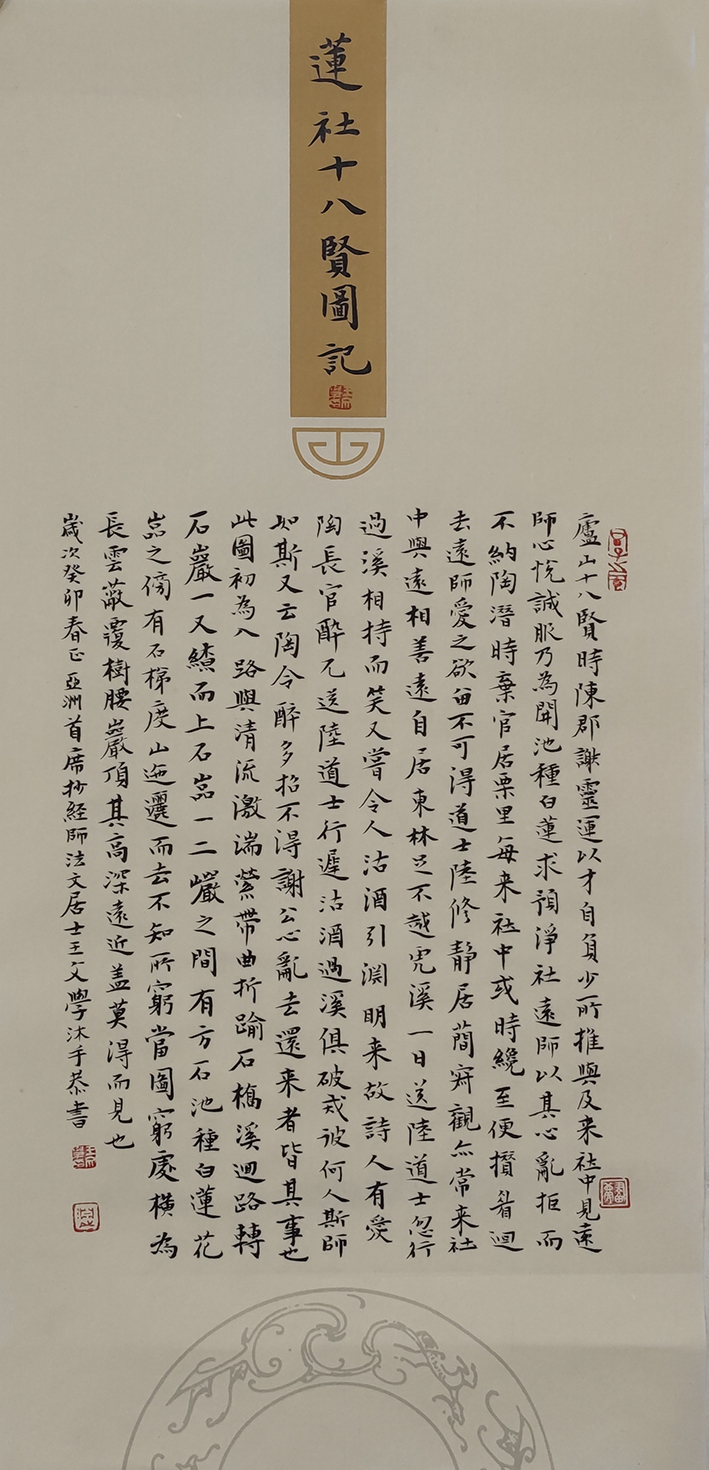 蓮社十八賢圖記
廬山十八賢時陳郡謝靈運以才自負少所推與及来社中見遠
師心悅誠服乃為開池種白蓮求預淨社遠師以其心亂拒而
不納陶潛時棄官居栗里每来社中或時纔至便攢眉迴
去遠師愛之欲留不可得道士陸修静居蕳寂觀亦常来社
中與遠相善遠自居東林足不越虎溪一日送陸道士忽行
過溪相持而笑又嘗令人沽酒引淵明来故詩人有愛
陶長官醉兀送陸道士行遲沽酒過溪俱破戒彼何人斯師
如斯又云陶令醉多招不得謝公心亂去還来者皆其事也
此圖初為入路與清流激湍縈帶曲折踰石橋溪迴路轉
石巖一又繞而上石嵓一二巖之間有方石池種白蓮花
嵓之傍有石梯度山迤邐而去不知所窮當圖窮處横為
長雲蔽覆樹腰巖頂其高深遠近盖莫得而見也
歲次癸卯春正亞洲首席抄經師法文居士王文學沐手恭書